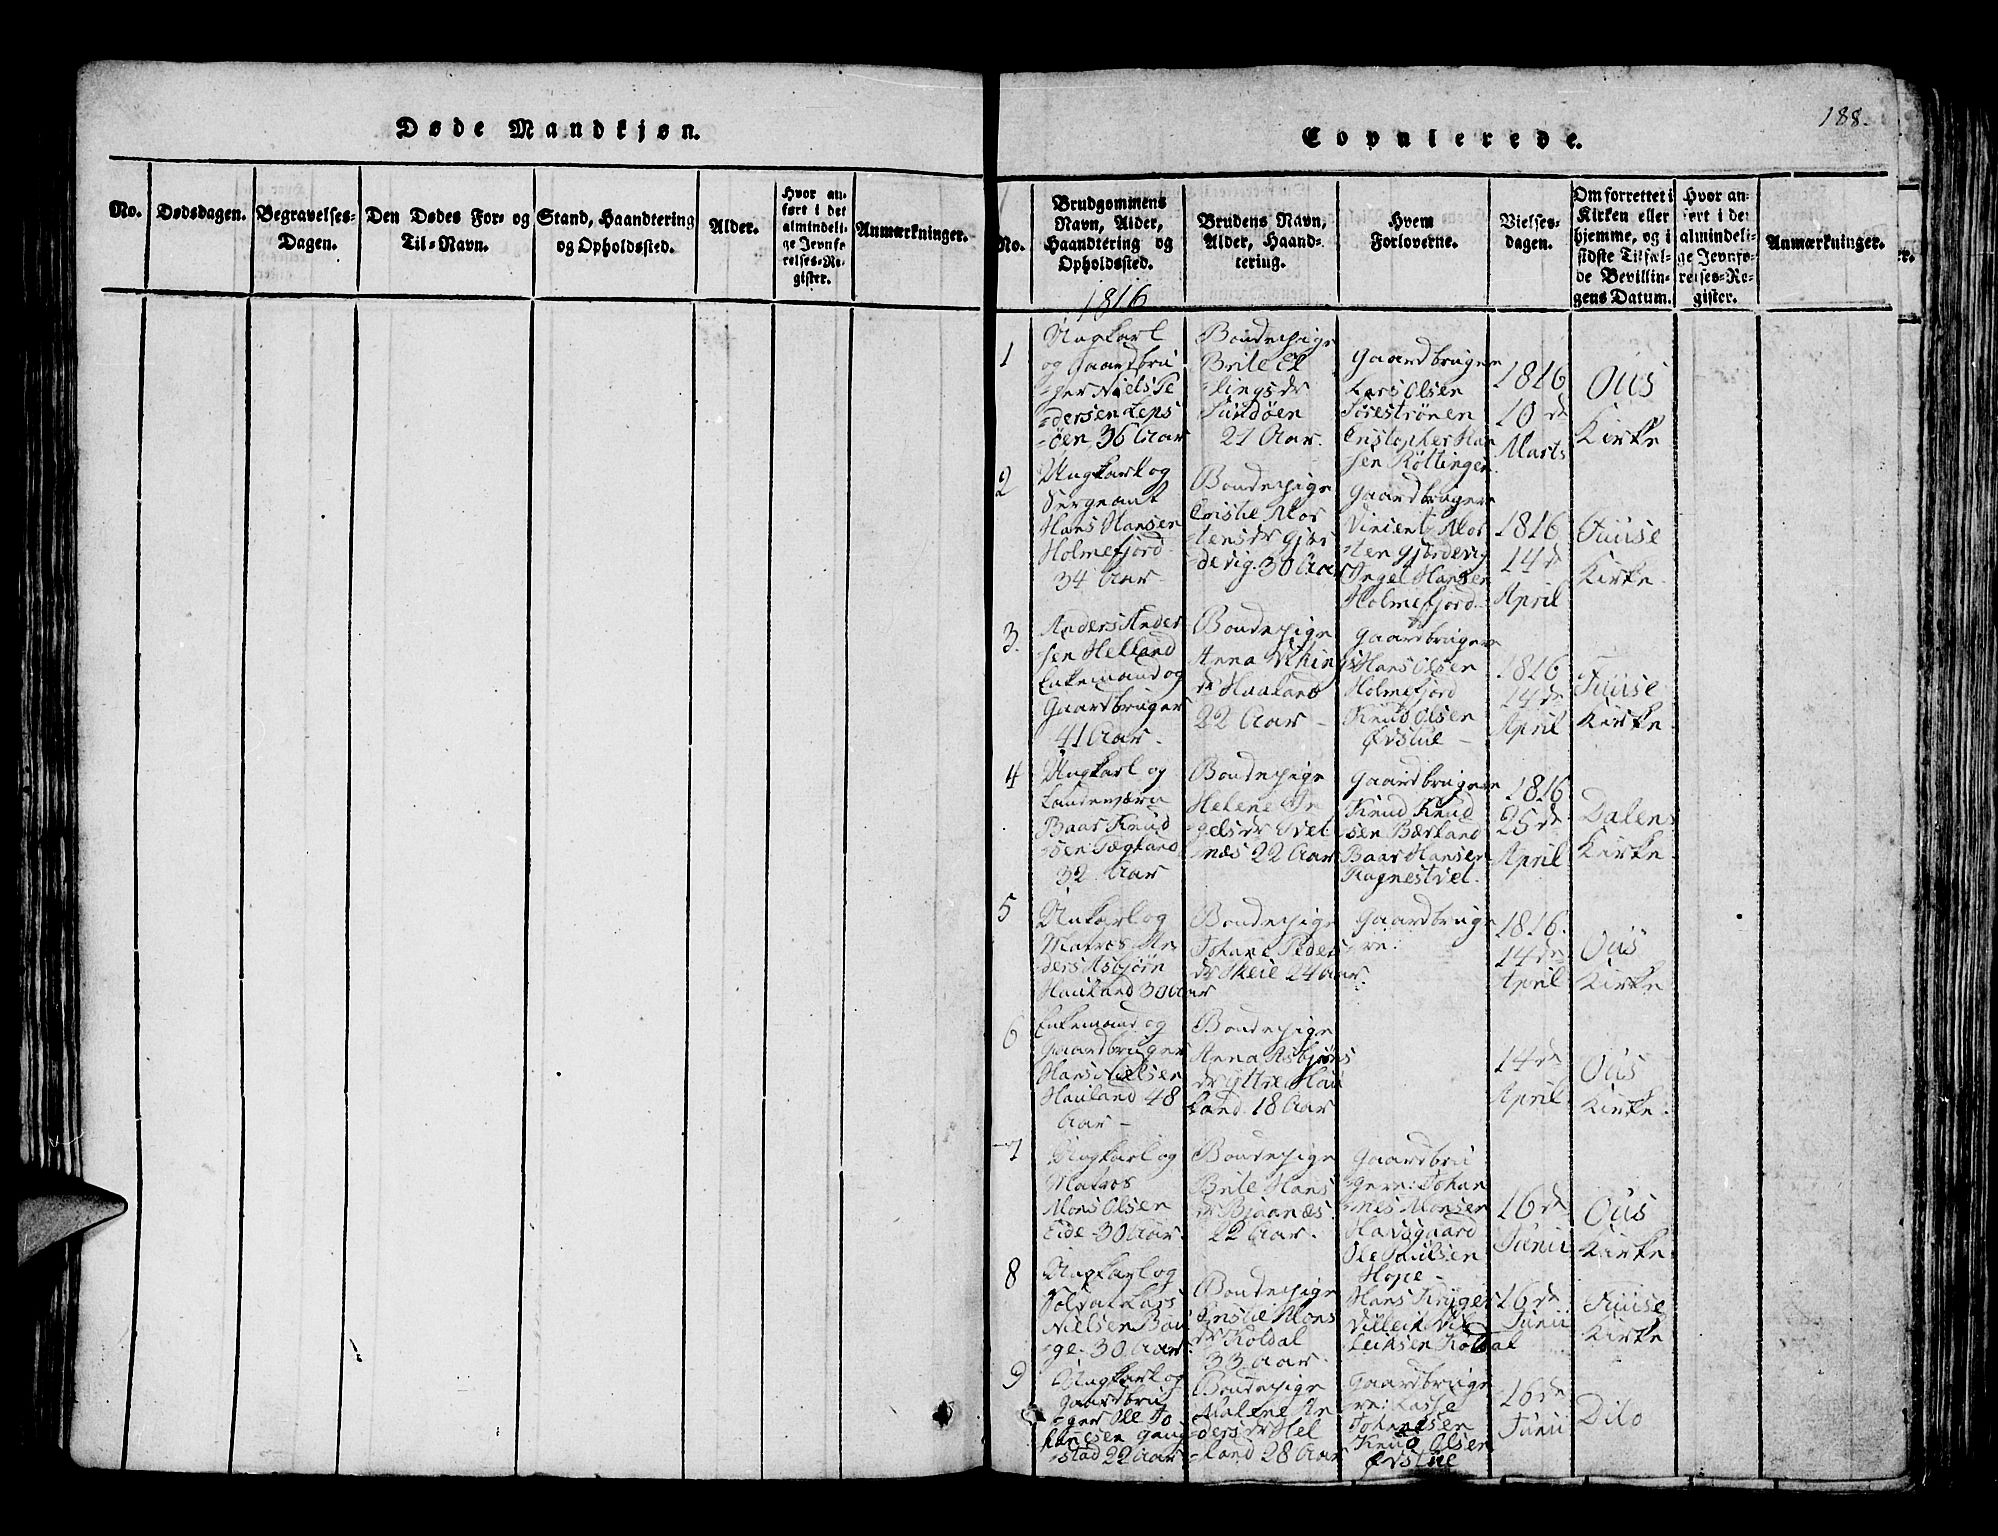 Døde Mandkjøn.
No.
Dødsdagen.
Begravelses-
Dagen.
Den Dødes For- og
Til-Navn.
Stand, Haandtering
og Opholdssted.
Alder.
Hvor an-
ført i det
almindeli-
ge Jevnfø-
relses-Re-
gister.
Anmærkninger.
188.
Copulerede.
No.
Brudgommens
Navn, Alder,
Haandtering og
Opholdssted.
Brudens Navn,
Alder, Haand-
tering.
Hvem
Forloverne.
Vielses-
dagen.
Om forrettet i
Kirken eller
hjemme, og i
sidste Tilfæl-
de Bevillin-
gens Datum.
Hvor an-
ført i det
almindeli-
ge Jevnfø-
relses-Re-
gister.
Anmærkninger.
1816
1
Ungkarl
og Gaardbru
-ger Niels Pe
-dersen Leps
-öen 36 Aar
Bondepige
Brite El
-lingsdr
Sundöen
21 Aar.
Gaardbrugere
Lars Olsen
Töreströnen
Cristopher Han
sen Röttingen
1816
10de
Marts
Ous
Kirke
2
Ungkarl og
Sergeant
Hans Hansen
Holmefjord
34 Aar
Bondepige
Cristie Mor
-tensdr Gjer
-devig. 30 Aar
Gaardbrugere
Vincent Mor
-ten Gjerdevig
Ingel Hansen
Holmefjord.
1816
14de
April
Fuuse
Kirke.
3.
Anders Ander
sen Helland
Enkemand og
Gaardbruger
41 Aar.
Bondepige
Anna
dr Haaland
22 Aar
Gaardbrugere
Hans Olsen
Holmefjord
Knud Olsen
Øvstue
1816
14de
April
Fuuse
Kirke.
4
Ungkarl og
Landeværn
Baar Knud
-sen Tegland
32 Aar
Bondepige
Helene In
-gelsdr Tvet
-næs 22 Aar
Gaardbrugere
Knud Knud
-sen Bærland
Baar Hansen
Ragnestvet.
1816
25de
April
Dalens
Kirke.
5
Unkarl og
Matros An
-ders Asbjörn
Hauland 30 Aar
Bondepige
Johane Peders
dr Skeie 24 Aar.
Gaardbruge
-re:
1816.
14de
April
Ous
Kirke
6
Enkemand og
Gaardbruger
Hans Nielsen
Hauland 48
Aar
Bondepige
Anna Asbjörns
dr Yttre Hau
land. 18 Aar
14de
April
Ous
Kirke.
7
Ungkarl og
Matros
Mons Olsen
Eide 30 Aar.
Bondepige
Brite Hans
dr Bjaanæs.
22 Aar.
Gaardbru
gere: Johan
-nes Monsen
Havsgaard
Ole Paulsen
Hope
16de
Junii
Ous
Kirke.
8
Ungkarl og
Soldat Lars
Nielsen Bou
-ge. 30 Aar
Bondepige
Cristie Mons
dr Koldal
33 Aar.
Hans Kryger
Villeik Vil
leiksen Koldal
16de
Junii
Fuuse
Kirke
9
Ungkarl og
Gaardbru
-ger Ole Jo
hanesen Gaug
-stad 22 Aar
Bondepige
Malene An
-dersdr Hel
-land 28 Aar
Gaardbruge
re: Lasse
Johanesen
Knud Olsen
Øvstue
16de
Junii
Dito